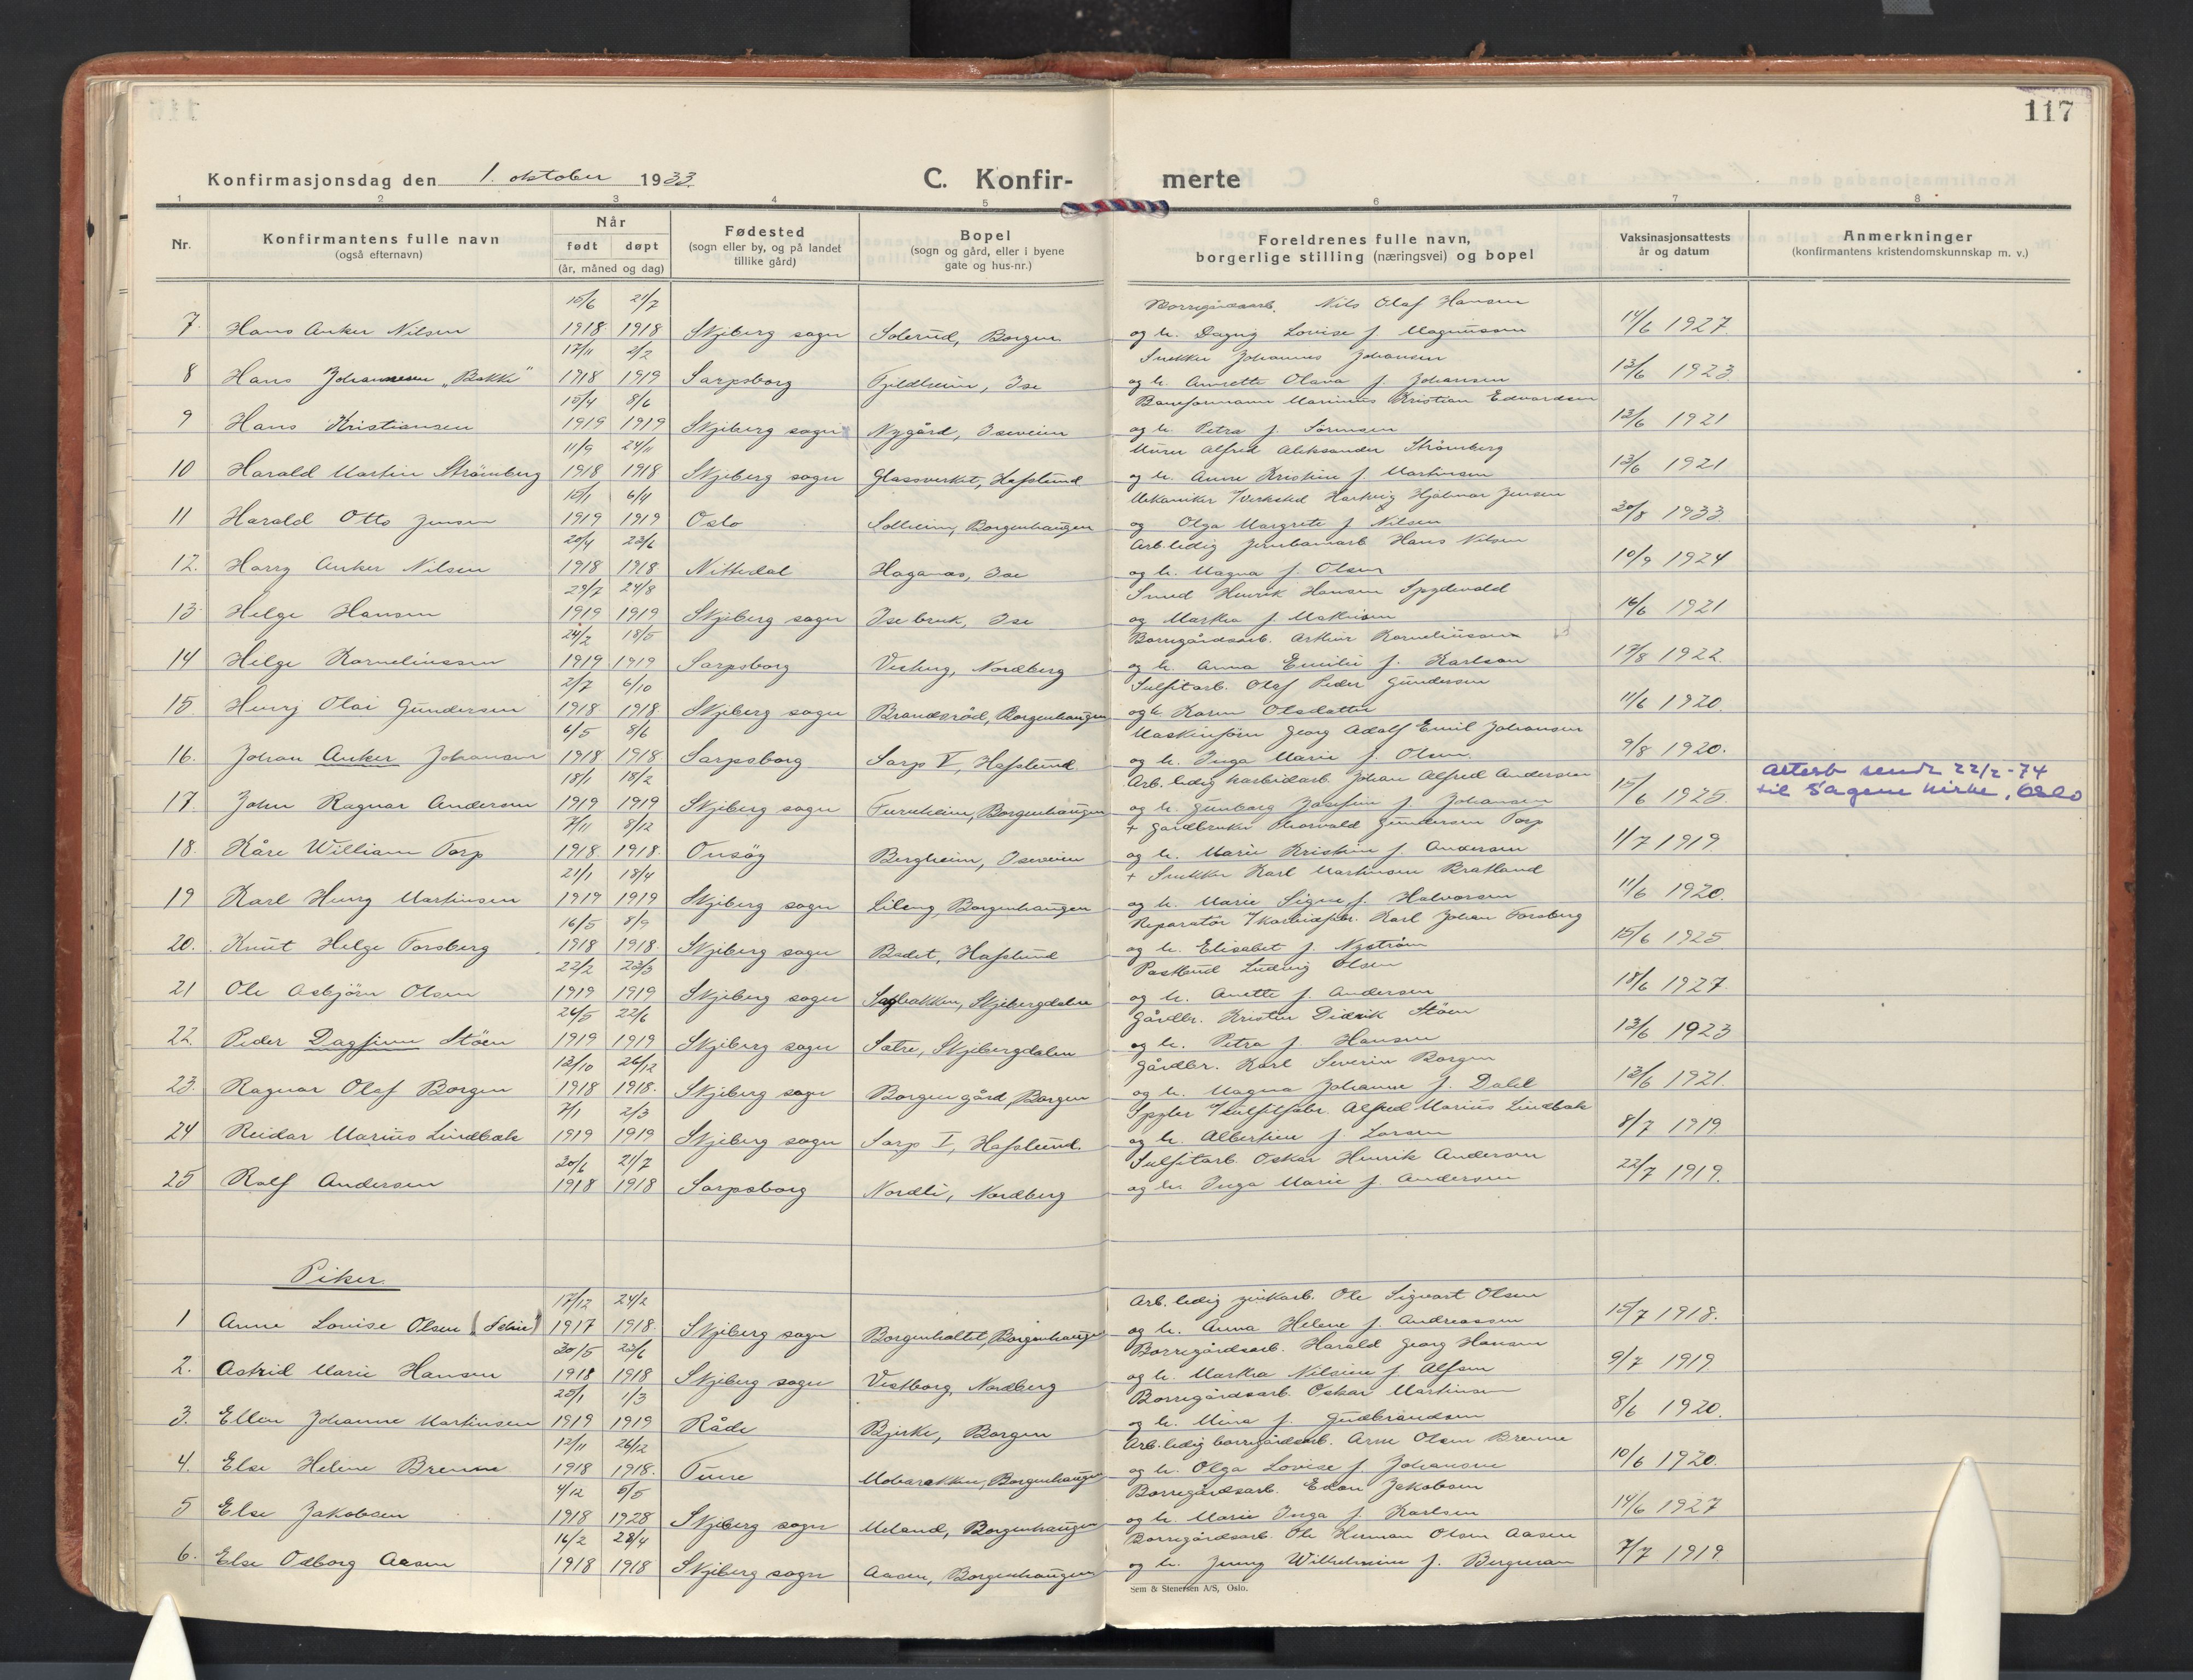 117
Konfirmasjonsdag den 1. oktober 1933.
C. Konfir- merte
1 2 3 4 5 6 7 8
Nr.
Konfirmantens fulle navn
(også efternavn)
Når
født døpt
(år, måned og dag)
Fødested
(sogn eller by, og på landet
tillike gård)
Bopel
(sogn og gård, eller i byene
gate og hus-nr.)
Foreldrenes fulle navn,
borgerlige stilling (næringsvei) og bopel
Vaksinasjonsattests
år og datum
Anmerkninger
(konfirmantens kristendomskunnskap m. v.)
15/6 21/7 Borregårdsarb. Nils Olaf Hansen
7. Hans Anker Nilsen 1918 1918 Skjeberg sogn Solerud, Borgen. og h. Dagny Lovise f. Magnussen 14/6 1927
17/11 2/2 Snekker Johannes Johansen
8 Hans Johannessen „Bakke" 1918 1919 Sarpsborg Fjeldheim, Ise og h. Annette Olava f. Johansen 13/6 1923
15/4 8/6 Baneformann Marinius Kristian Edvardsen
9 Hans Kristiansen 1919 1919 Skjeberg sogn Nygård, Iseveien og h. Petra f. Sørensen 13/6 1921
11/9 24/11 Murer Alfred Aleksander Strømberg
10 Harald Martin Strömberg 1918 1918 Skjeberg sogn Glassverket, Hafslund og h. Anna Kristine f. Martinsen 13/6 1921
15/1 6/4 Mekaniker v/verksted Hartvig Hjalmar Jensen
11 Harald Otto Jensen 1919 1919 Oslo Solheim, Borgenhaugen og Olga Margrete f. Nilsen 20/8 1933
20/4 23/6 Arb.ledig jernbanearb Hans Nilsen
12. Harry Anker Nilsen 1918 1918 Nittedal Haganæs, Ise og h. Magna f. Olsen 10/9 1924
29/7 24/8 Smed Henrik Hansen Spydevold
13 Helge Hansen 1919 1919 Skjeberg sogn Ise bruk, Ise og Martha f. Mathisen 16/6 1921
24/2 18/5 Borregårdsarb. Arthur Korneliussen
14 Helge Korneliussen 1919 1919 Sarpsborg Visterg, Nordberg og h. Anna Emilie f. Karlson 17/8 1922.
2/7 6/10 Sulfitarb. Olaf Peder Gundersen
15 Henry Olai Gundersen 1918 1918 Skjeberg sogn Brandsrød, Borgenhaugen og h. Karen Olsdatter 11/6 1920.
6/5 8/6 Maskinform Georg Adolf Emil Johansen
16. Johan Anker Johansen 1918 1918. Sarpsborg Sarp V, Hafslund og h. Inga Marie f. Olsen. 9/8 1920.
18/1 18/2 Arb. ledig karbidarb. Johan Alfred Andersen
17. John Ragnar Andersen 1919 1919 Skjeberg sogn Furuheim, Borgenhaugen og h. Gunborg Josefine f. Johansen 15/6 1925. Attest sendt 22/2-74
til Sagene kirke, Oslo
7/11 8/12 + gårdbruker Thorvald Gundersen Torp
18. Kåre William Torp 1918 1918. Onsøy Bergheim, Iseveien og h. Marie Kristine f. Andersen 11/7 1919
21/1 18/4 + Snekker Karl Martinsen Bratland
19 Karl Henry Martinsen 1919 1919 Skjeberg sogn Lileng, Borgenhaugen og h. Marie Signe f. Halvorsen 11/6 1920.
16/5 8/9 Reparatør v/karbidfabr. Karl Johan Forsberg
20. Knut Helge Forsberg 1918 1918. Skjeberg sogn Badet, Hafslund og h. Elisabet f. Nystrøm 15/6 1925
22/2 23/3 Postbud Ludvig Olsen
21 Ole Asbjørn Olsen 1919 1919 Skjeberg sogn Sagbakken, Skjebergdalen og h. Anette f. Andersen 18/6 1927.
26/5 22/6 Gårdbr. Kristen Didrik Støen
22. Peder Dagfinn Støen 1919 1919 Skjeberg sogn Sætre, Skjebergdalen og h. Petra f. Hansen 13/6 1923
13/10 26/12 Gårdbr. Karl Severin Borgen
23. Ragnar Olaf Borgen 1918 1918. Skjeberg sogn Borgen gård, Borgen og h. Magna Johanne f. Dahl 13/6 1921.
7/1 2/3 Spyler v/sulfitfabr. Alfred Marius Lindbæk
24 Reidar Marius Lindbæk 1919 1919 Skjeberg sogn Sarp I, Hafslund. og h. Albertine f. Larsen 8/7 1919
20/6 21/7 Sulfitarb. Oskar Henrik Andersen
25 Rolf Andersen 1918 1918 Sarpsborg Nordli, Nordberg og h. Inga Marie f. Andersen 22/7 1919.
Piker.
17/12 24/2 Arb. ledig zinkarb. Ole Sigvart Olsen
1 Anne Lovise Olsen 1917 1918. Skjeberg sogn Borgenholtet, Borgenhaugen og h. Anna Helene f. Andreassen 15/7 1918.
30/5 23/6 Borregårdsarb. Harald Georg Hansen
2. Astrid Marie Hansen 1918 1918 Skjeberg sogn Vestborg, Nordberg og h. Martha Nilsine f. Alfsen 9/7 1919
25/1 1/3 Borregårdsarb. Oskar Martinsen
3. Ellen Johanne Martinsen 1919 1919 Råde Bjerke, Borgen og h. Mina f. Gudbrandsen 8/6 1920.
12/11 26/12 Arb. ledig borregårdsarb. Arne Olsen Brenne
4. Else Helene Brenne 1918 1918. Tune Mobarakken, Borgenhaugen og h. Olga Lovise f. Johansen 10/6 1920.
4/12 5/5 Borregårdsarb. Edon Jakobsen
5 Else Jakobsen 1918 1928 Skjeberg sogn Meland, Borgenhaugen og h. Marie Inga f. Karlsen 14/6 1927
16/2 28/4 Borregårdsarb. Ole Herman Olsen Aasen
6. Else Odborg Aasen 1918 1918 Skjeberg sogn Aasen, Borgenhaugen og h. Jenny Wilhelmine f. Bergman 7/7 1919
Sem & Stenersen A/S, Oslo.